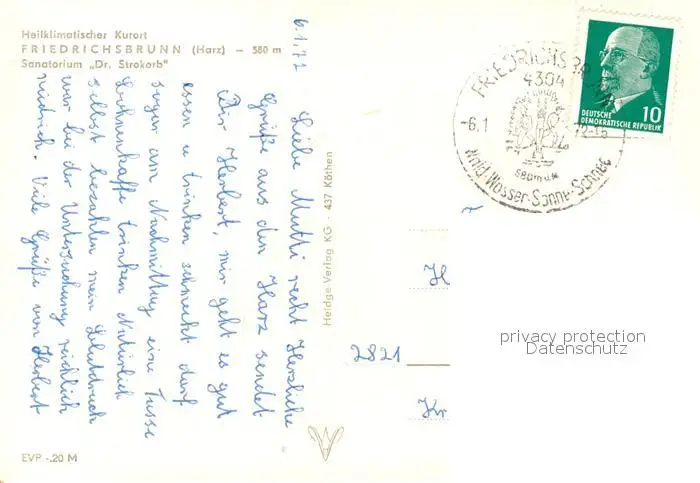 Heilklimatischer Kurort
FRIEDRICHSBRUNN (Harz) – 580 m
Sanatorium „Dr. Strokorb"
6.1.72
Liebe Mutti recht Herzliche
Grüße aus den Harz sendet
Dir Herbert, mir geht es gut
essen u trinken schmeckt darf
sogar am Nachmittag eine Tasse
Bohnenkaffe trinken Natürlich
selbst bezahlen mein Blutdruck
war bei der Untersuchung reichlich
niedrich. Viele Grüße von Herbert
Heldge Verlag KG - 437 Köthen
EVP -.20 M
FRIEDRICHSBRUNN
4304
-6.1
72-15
580m ü. M
Wald-Wasser-Sonne-Schnee
10
DEUTSCHE
DEMOKRATISCHE REPUBLIK
H
2821
Kr
privacy protection
Datenschutz